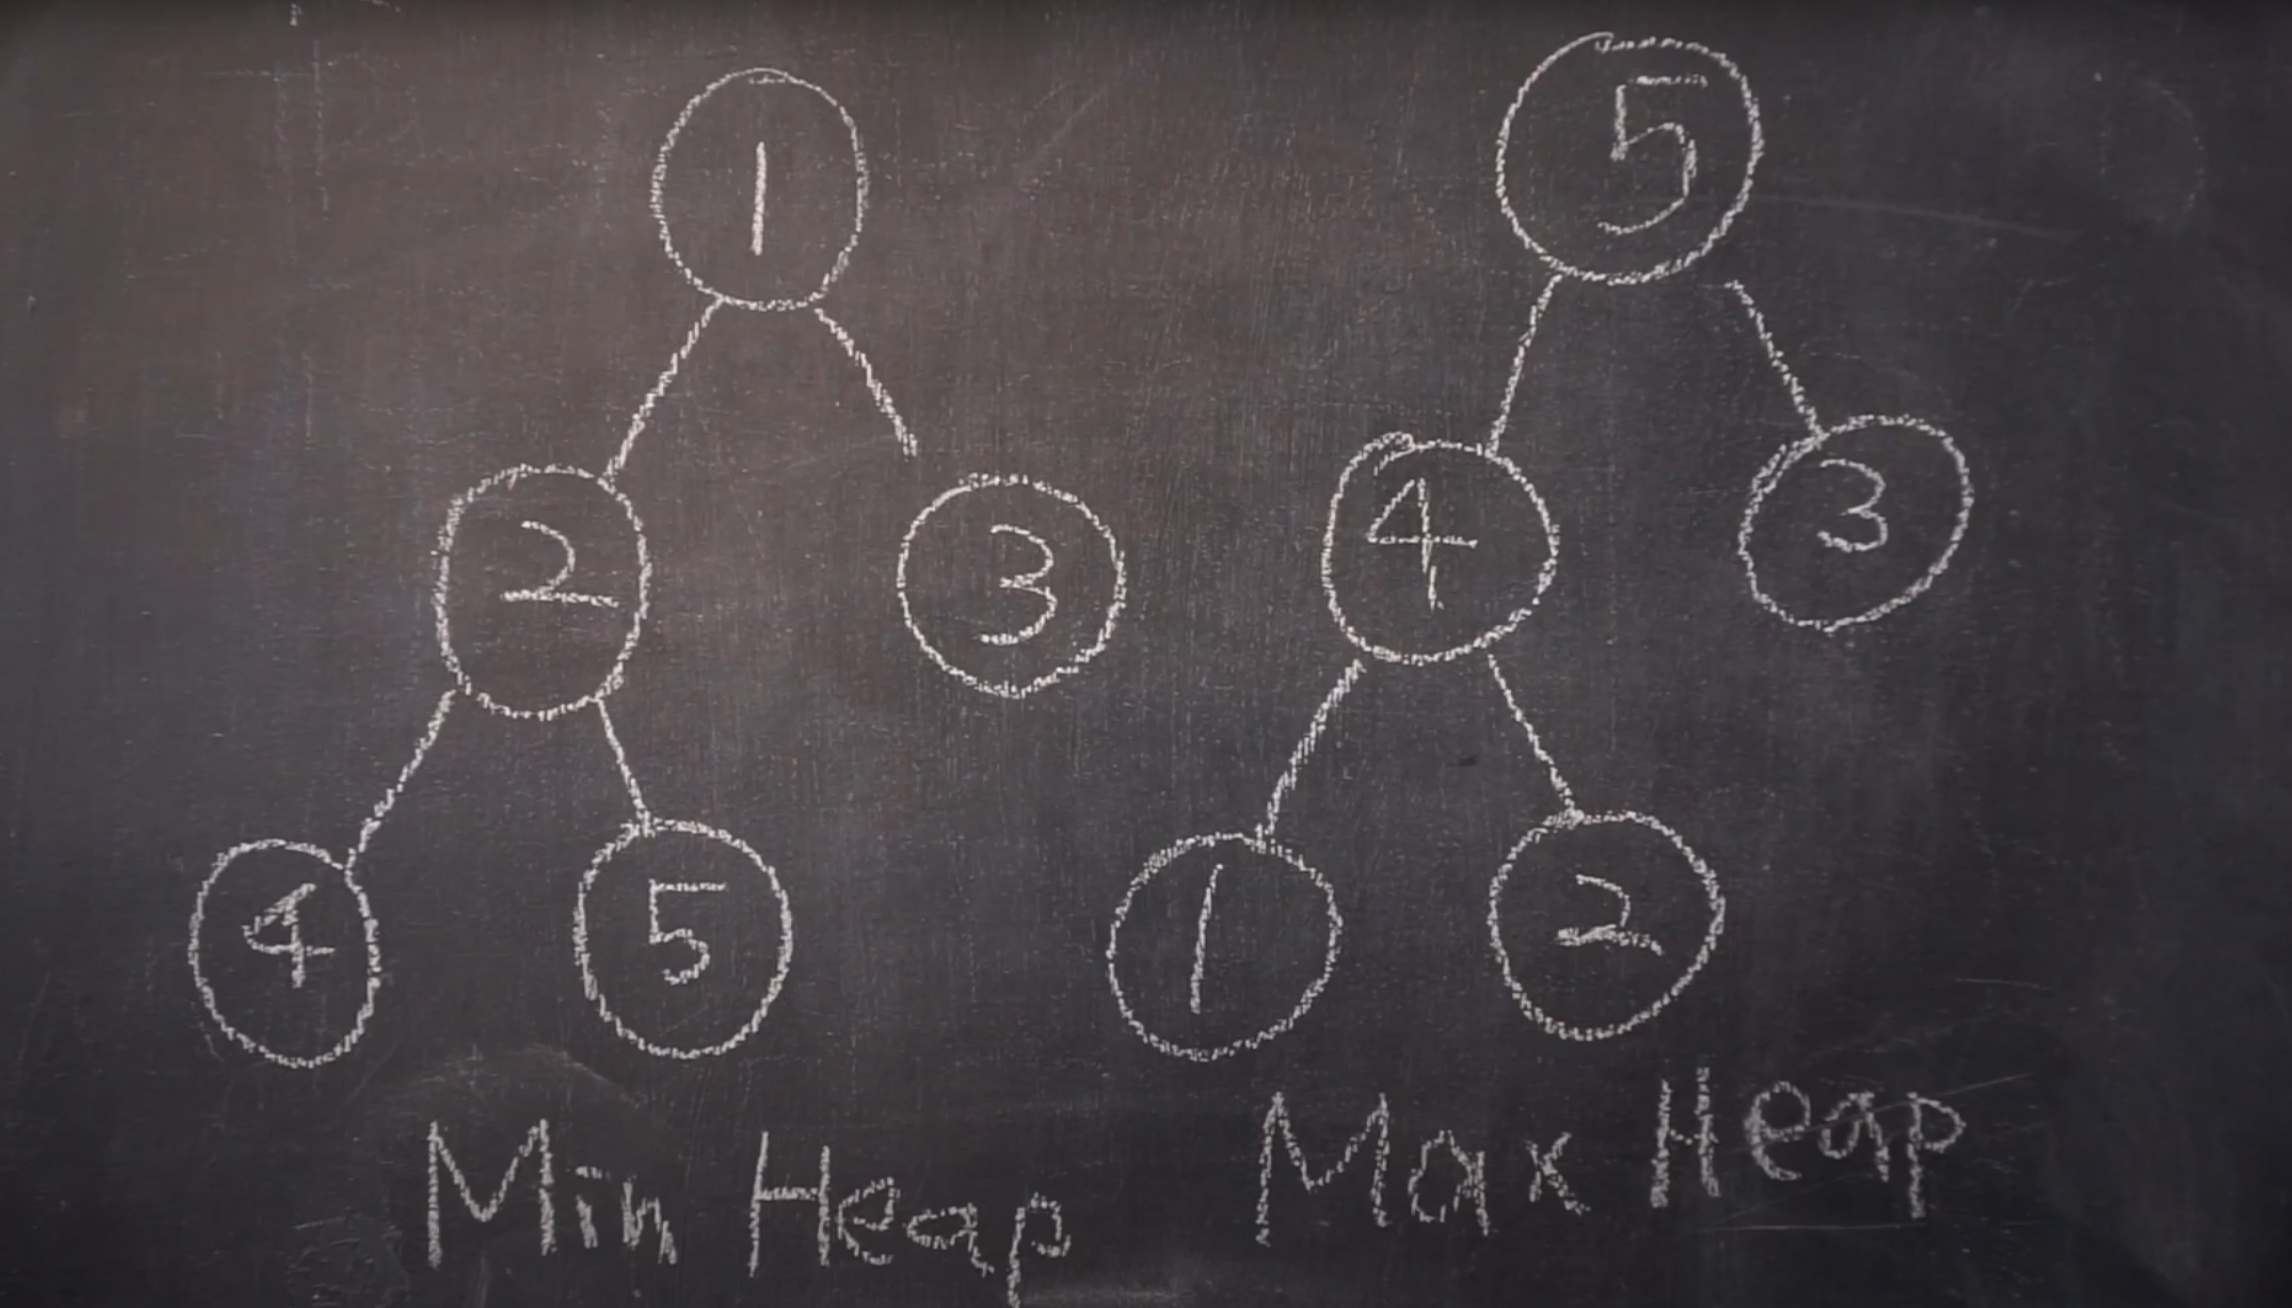 1
2 3
4 5
Min Heap
5
4 3
1 2
Max Heap